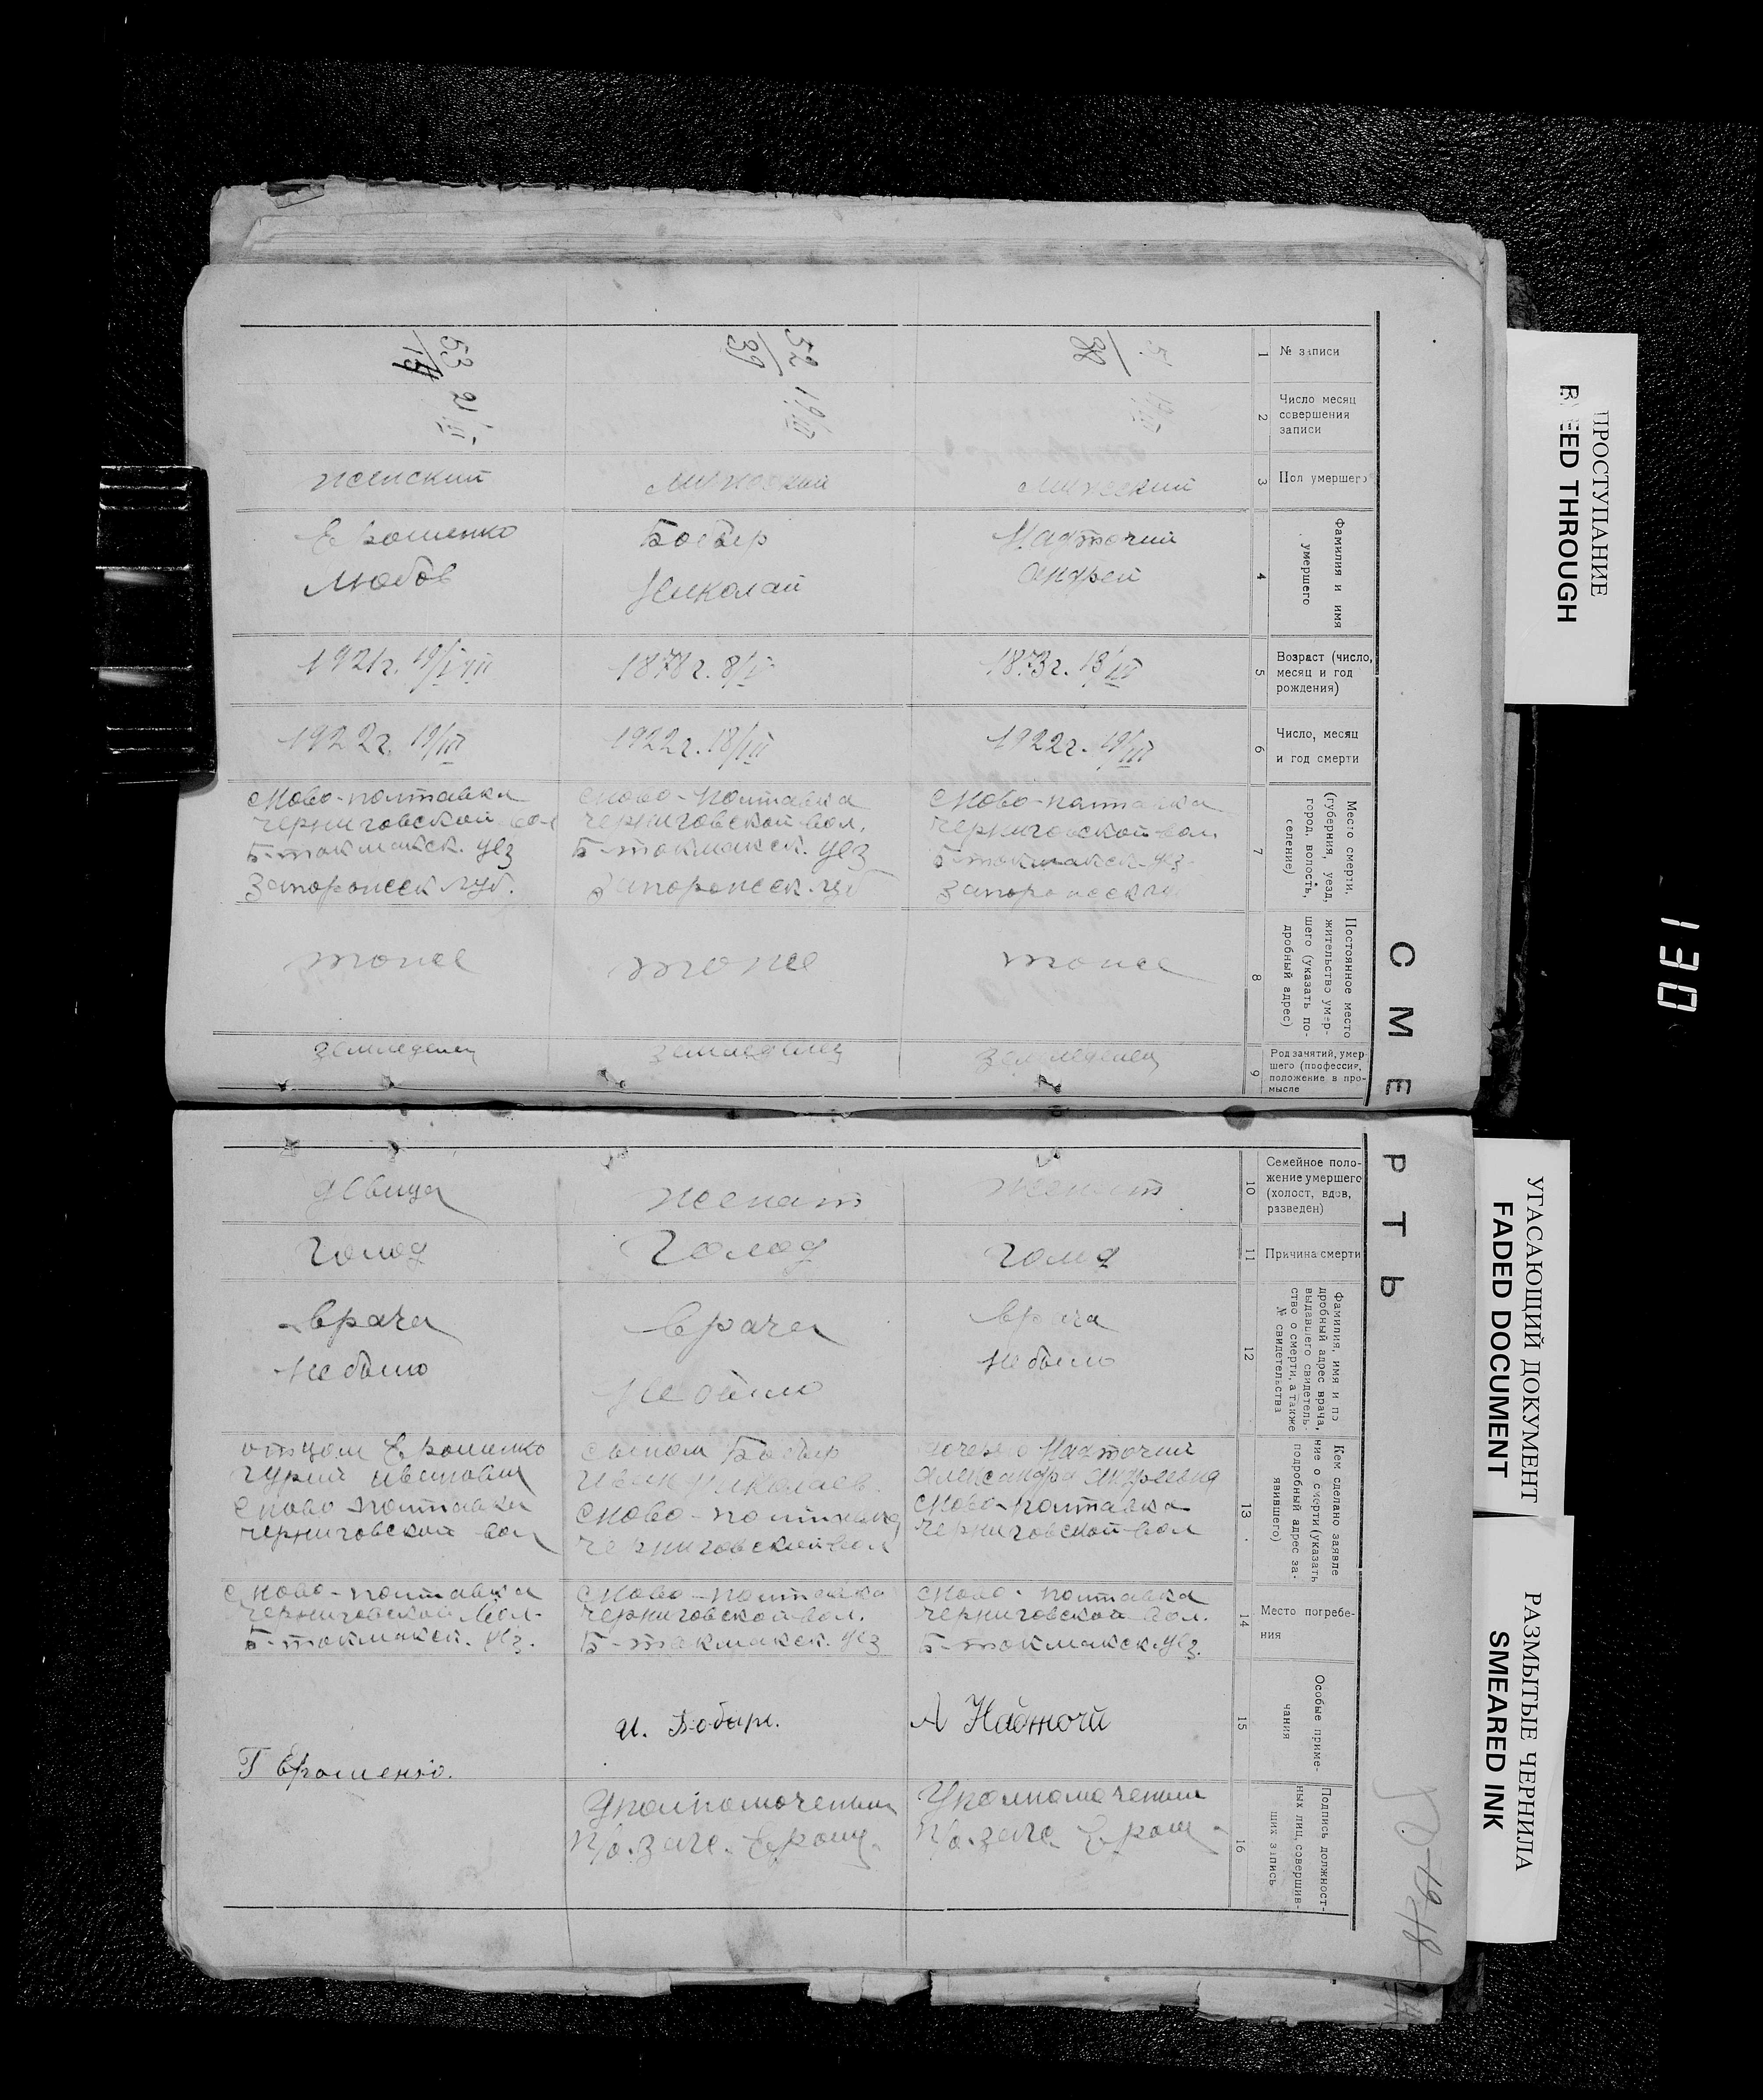 СМЕРТЬ
1
№ записи
2
Число месяц
совершения
записи
3
Пол умершего
4
Фамилия и имя
умершего
5
Возраст (число,
месяц и год
рождения)
6
Число, месяц
и год смерти
7
Место смерти.
(губерния, уезд,
город, волость,
селение)
8
Постоянное место
жительство умер-
шего (указать по-
дробный адрес)
9
Род занятий, умер
шего (профессия,
положение в про-
мысле
10
Семейное поло-
жение умершего
(холост, вдов,
разведен)
11
Причина смерти
12
Фамилия, имя и по
дробный адрес врача,
выдавшего свидетель-
ство о смерти, а также
№ свидетельства
13
Кем сделано заявле
ние о смерти (указать
подробный адрес за-
явившего)
14
Место погребе-
ния
15
Особые приме-
чания
16
Подпись должност-
ных лиц, совершив-
ших запись
38
19/III
мужеский
Надточий
Андрей
1873г. 13/IV
1922г. 19/III
с Ново-полтавка
черниговской вол.
Б-токмакск. уез.
Запорожеск гу
тоже
земледелец
женат
голод
врача
не было
дочерью Надточий
Александра Андреевна
с Ново-полтавка
черниговской вол
с Ново-полтавка
черниговской вол.
Б-токмакск. уез.
А Надточй
Уполномоченый
п/о. загс. Ерош
52/39
19/III
мужеский
Бобыр
Николай
1878г. 8/V
1922г. 18/III
с Ново-полтавка
черниговской вол.
Б-токмакск. уез
Запорожеск. губ
тоже
земледелец
женат
Голод
врача
Не было
сыном Бобыр
Иван Николаев.
с Ново-полтавка
черниговской вол
с Ново-полтавка
черниговской вол.
Б-токмакск. уез
И. Бобырь.
Уполномоченый
п/о. загс. Ерош.
53/14
21/III
женский
Ерошенко
Любов
1921г. 19/VIII
1922г. 19/III
с Ново-полтавка
черниговской вол
Б-токмакск. уез
Запорожеск губ.
тоже
земледелец
девица
Голод
врача
Не было
отцом Ерошенко
Гурий
с Ново полтавка
черниговской вол
с Ново-полтавка
черниговской вол.
Б-токмакск. уез.
Г Ерошенко.
ПРОСТУПАНИЕ
BLEED THROUGH
130
УГАСАЮЩИЙ ДОКУМЕНТ
FADED DOCUMENT
РАЗМЫТЫЕ ЧЕРНИЛА
SMEARED INK